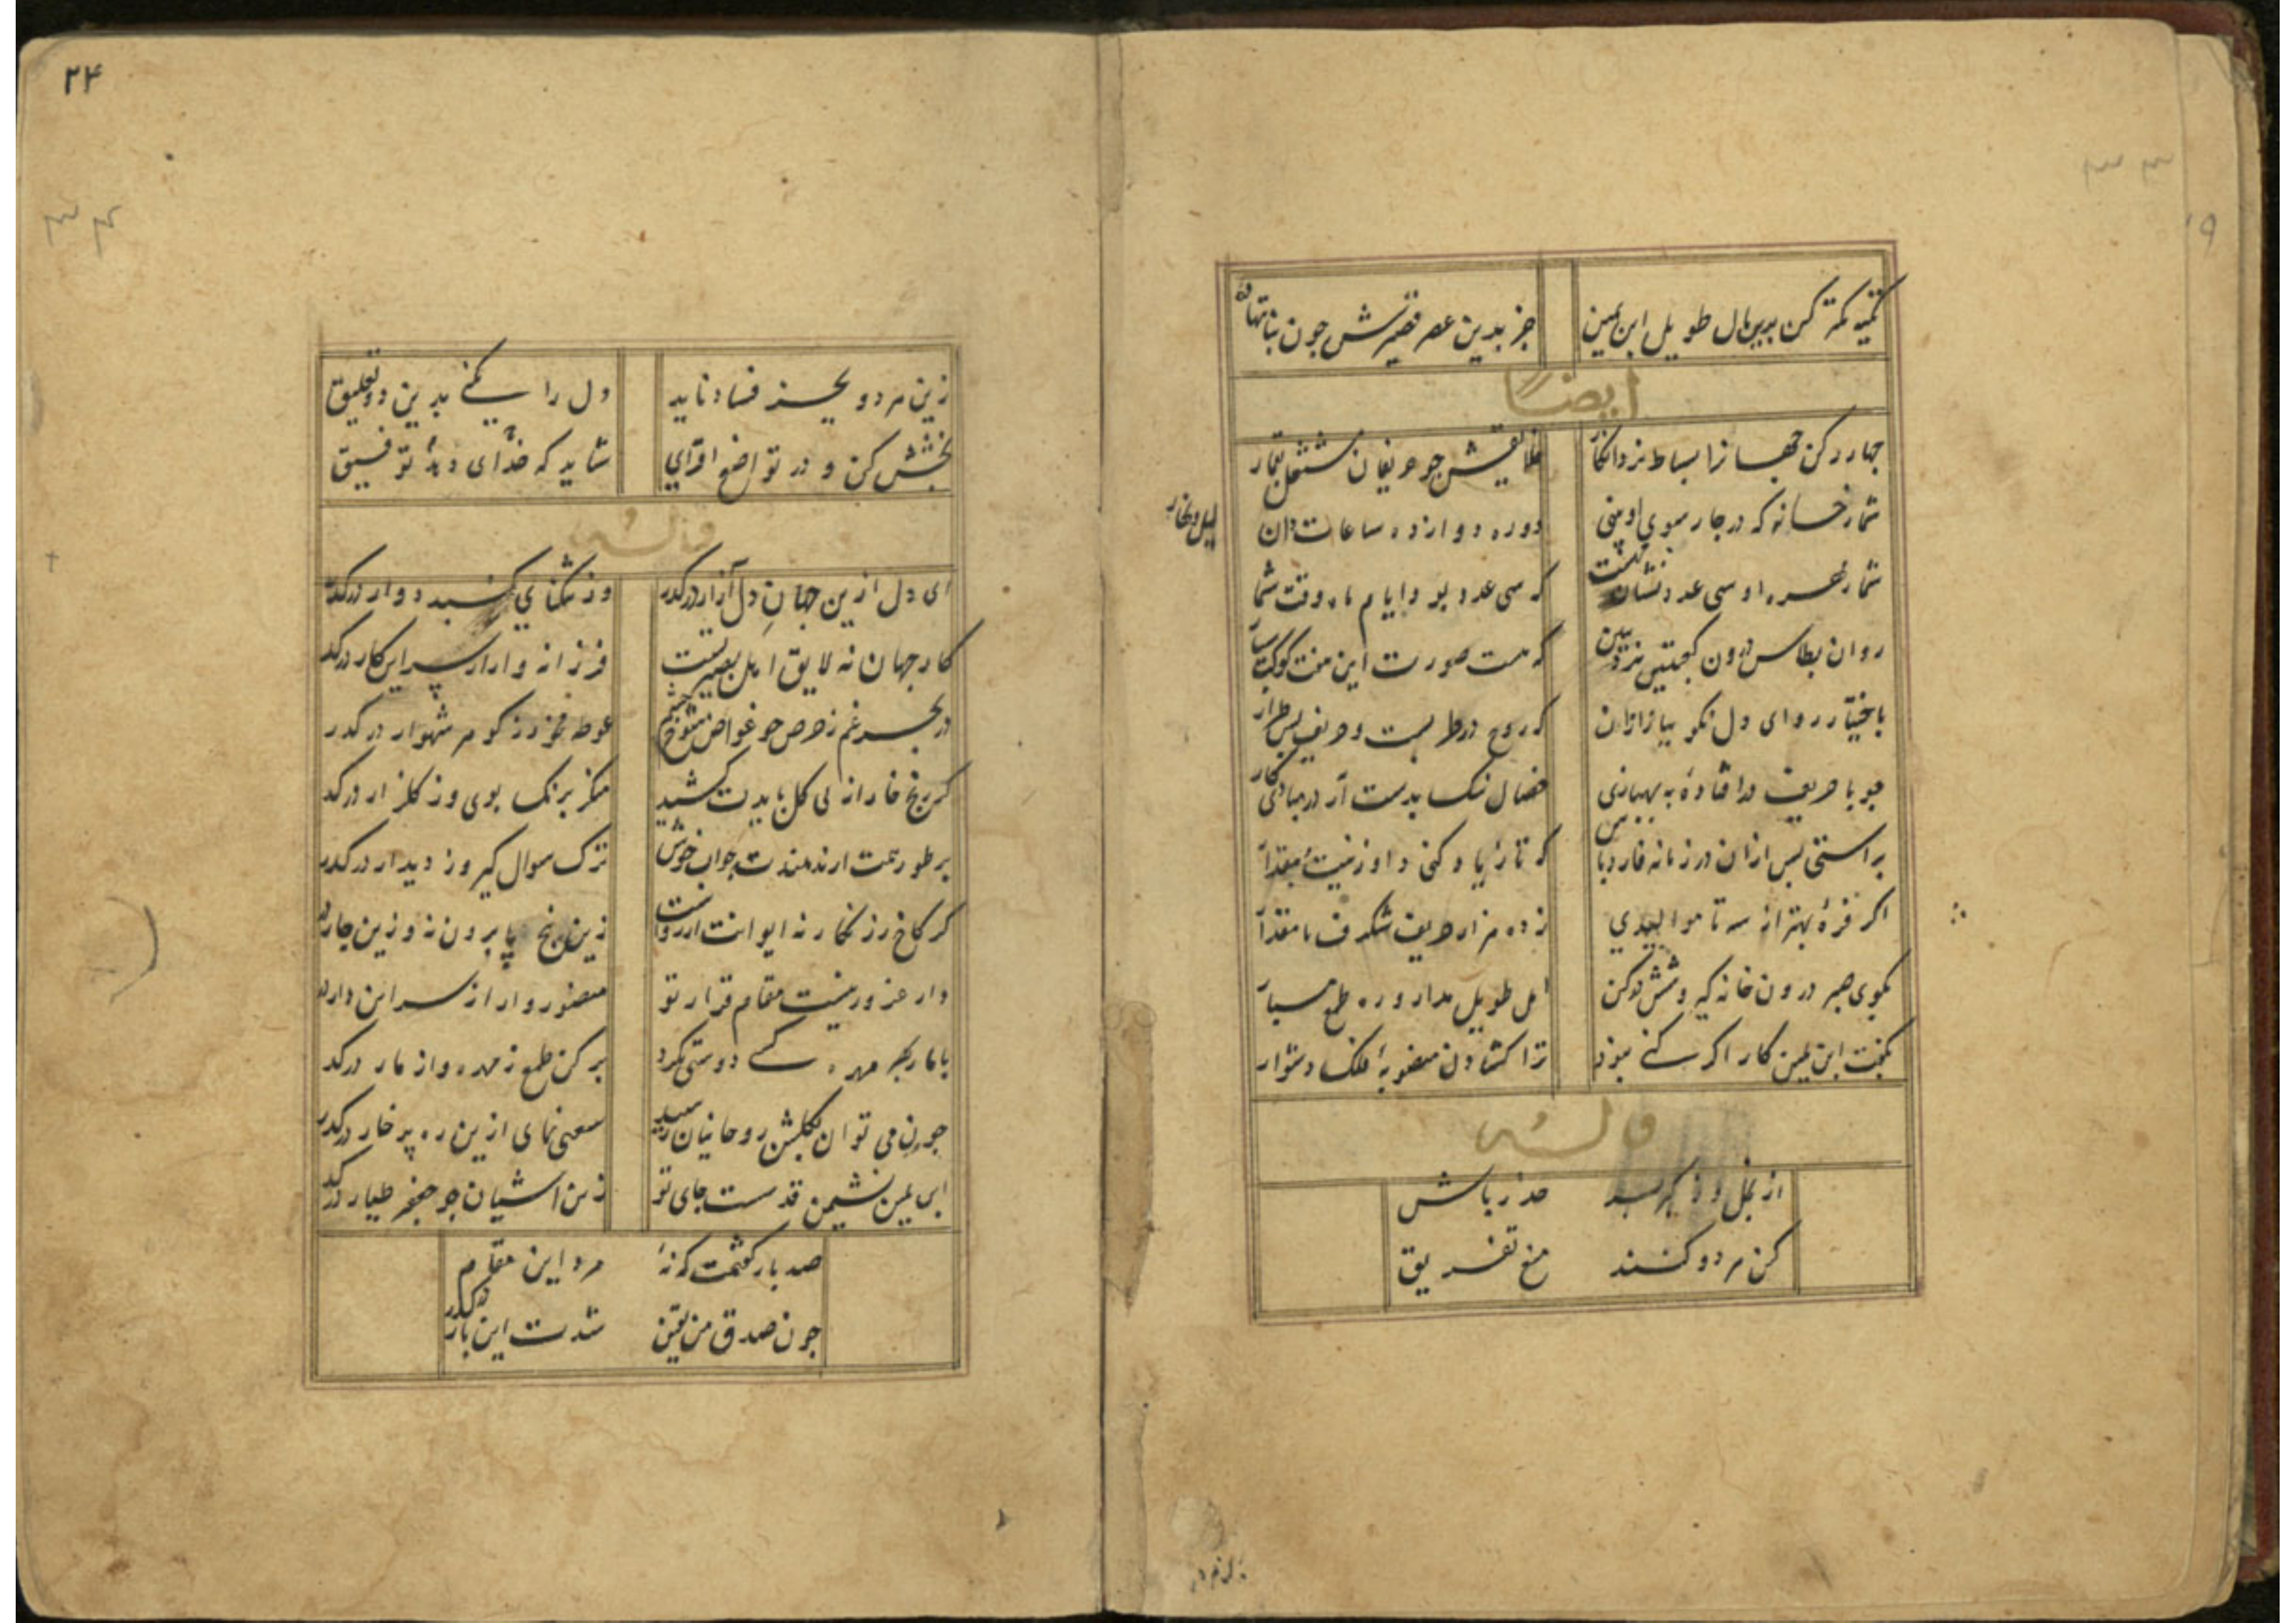 تکیه کمتر کن بدین مال طویل ابن یمین
جز بدین عمر قصیرش چون بنا نتهاده
ایضا
چهار رکن جهانرا بساط نرد انگار
خلایقش چو حریفان مشتغل بقمار
شمار خانه که در چار سوی او بینی
دوره دوازده ساعات دان
لیل و نهار
شمار مهره او سی عدد نشان
که سی عدد بود ایام ماه وقت شمار
روان بطاس درون کعبتین نرد ببین
که هست صورت این هفت کوکب سیار
باختیار روای دل نکو بباز ازان
چو با حریف درافتاده به بهبازی
خصال نیک بدست آر در مبادی کار
براستی پس ازان در زمانه فارد باش
که تا زیاد کنی داو زینت مقدار
اگر فره بهتر از سه تا موالیدی
ز ده هزار حریف شگرف با مقدار
بکوی صبر درون خانه گیر و شش در کن
امل طویل مدار و ره طمع مسپار
بگفت ابن یمین کار اگر کنی نبود
ترا گشادن منصوبه فلک دشوار
و له
از بخل و ز کبر
حذر باش
کن هر دو کنند
منع تفریق
۲۴
زین هر دو بجز فساد ناید
دل را یکنی بدین دو تعلیق
بخشش کن و در تواضع افزای
شاید که خدای دهد توفیق
و له
ای دل ازین جهان دل آزار درگذر
وز تنگنای گنبد دوار درگذر
کار جهان نه لایق اهل بصیرتست
فرزانه وار از سر این کار درگذر
در بحر غم ز حرص چو غواص شوخ چشم
غوطه مخور ز گوهر شهوار درگذر
گر رنج خار از پی گل بایدت کشید
منگر برنگ و بوی و ز گلزار درگذر
بر طور همت ار ندهندت جواب خوش
ترک سوال گیر و ز دیدار درگذر
گر کاخ زرنگار نه ایوانت آرزواست
زین پنج پا برون نه و زین چار درگذر
دار غرور نیست مقام قرار تو
منصور وار از سر این دار درگذر
با مار بهر مهره کسی دوستی نکرد
بر کن طمع ز مهره و از مار درگذر
چون می توان بگلشن روحانیان رسید
سعیی نمای ازین ره پر خار درگذر
ابن یمین نشیمن قدسست جای تو
زین آشیان چو جعفر طیار درگذر
صد بار گفتمت که نه
مرد این مقام
چون صدق من یقین
شدت این بار درگذر